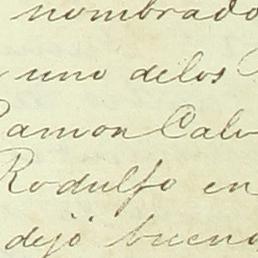 nombrado
uno delos
Ramon Calv
Rodulfo en
dejó bueno